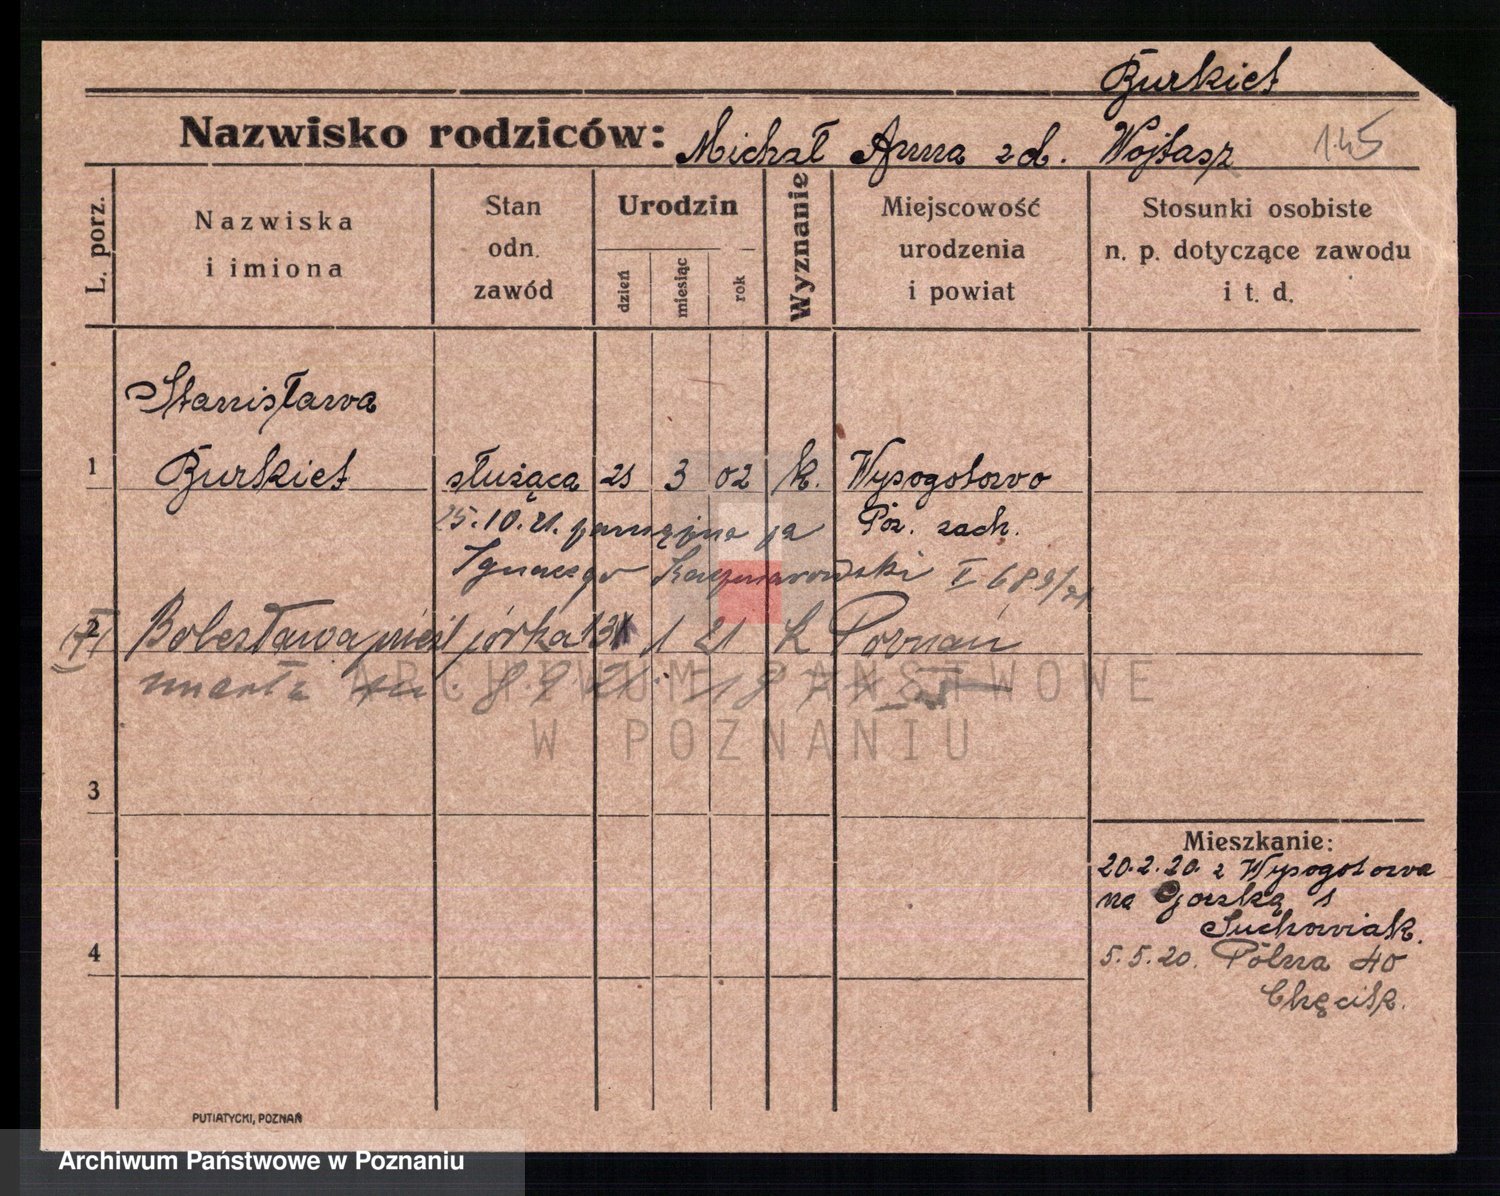 Burkiet
Nazwisko rodziców: Michał Anna zd. Wojtasz 145
L. porz.
Nazwiska
i imiona
Stan
odn.
zawód
Urodzin
dzień
miesiąc
rok
Wyznanie
Miejscowość
urodzenia
i powiat
Stosunki osobiste
n. p. dotyczące zawodu
i t. d.
Stanisława
1 Burkiet służąca 21 3 02 k. Wysogotowo
25.10.21. zamężna za Poz. zach.
Ignacego Kaczmarowski I 689/21
2 Bolesława nieśl córka 1 21 k Poznań
zmarła 8.9 21.
3
Mieszkanie:
20.2.20. z Wysogotowa
na Gorską 1
Suchowiak.
4
5.5.20. Polna 40
PUTIATYCKI, POZNAŃ
ARCHIWUM PAŃSTWOWE
W POZNANIU
Archiwum Państwowe w Poznaniu